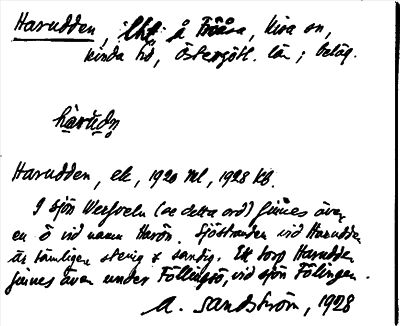 Harudden, lht å Tröåsa, Kisa sn,
Kinda hd, Östergötl. län; beläg.
hàrùdn
Harudden, ek, 1920 ml, 1928 KB.
I sjön Verveln (se detta ord) finnes även
en ö vid namn Harön. Sjöstranden vid Harudden
är tämligen stenig & sandig. Ett torp Harudden
finnes även under Föllingsö, vid sjön Föllingen.
A. Sandström, 1928